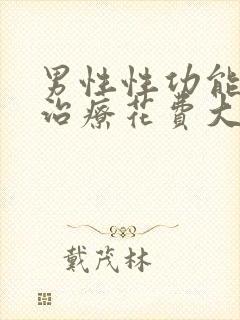 男性性功能
治療花費大
戴茂林